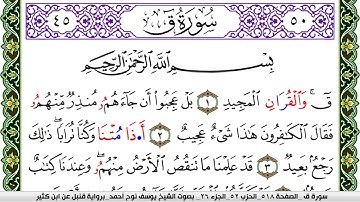 ٥٠ سُورَةُ ق ٤٥
بِسْمِ اللَّهِ الرَّحْمَٰنِ الرَّحِيمِ
قٓ ۚ وَالْقُرَانِ الْمَجِيدِ ١ بَلْ عَجِبُوا أَن جَاءَهُمُۥ مُنذِرٌ مِّنْهُمُۥ
فَقَالَ الْكَٰفِرُونَ هَٰذَا شَيْءٌ عَجِيبٌ ٢ أَ•ذَا مُتْنَا وَكُنَّا تُرَابًا ۖ ذَٰلِكَ
رَجْعٌ بَعِيدٌ ٣ قَدْ عَلِمْنَا مَا تَنقُصُ الْأَرْضُ مِنْهُمُۥ ۖ وَعِندَنَا كِتَٰبٌ
سورة ق _ الصفحة ٥١٨ _ الحزب ٥٢ _ الجزء ٢٦ _ بصوت الشيخ يوسف نوح أحمد _ برواية قنبل عن ابن كثير